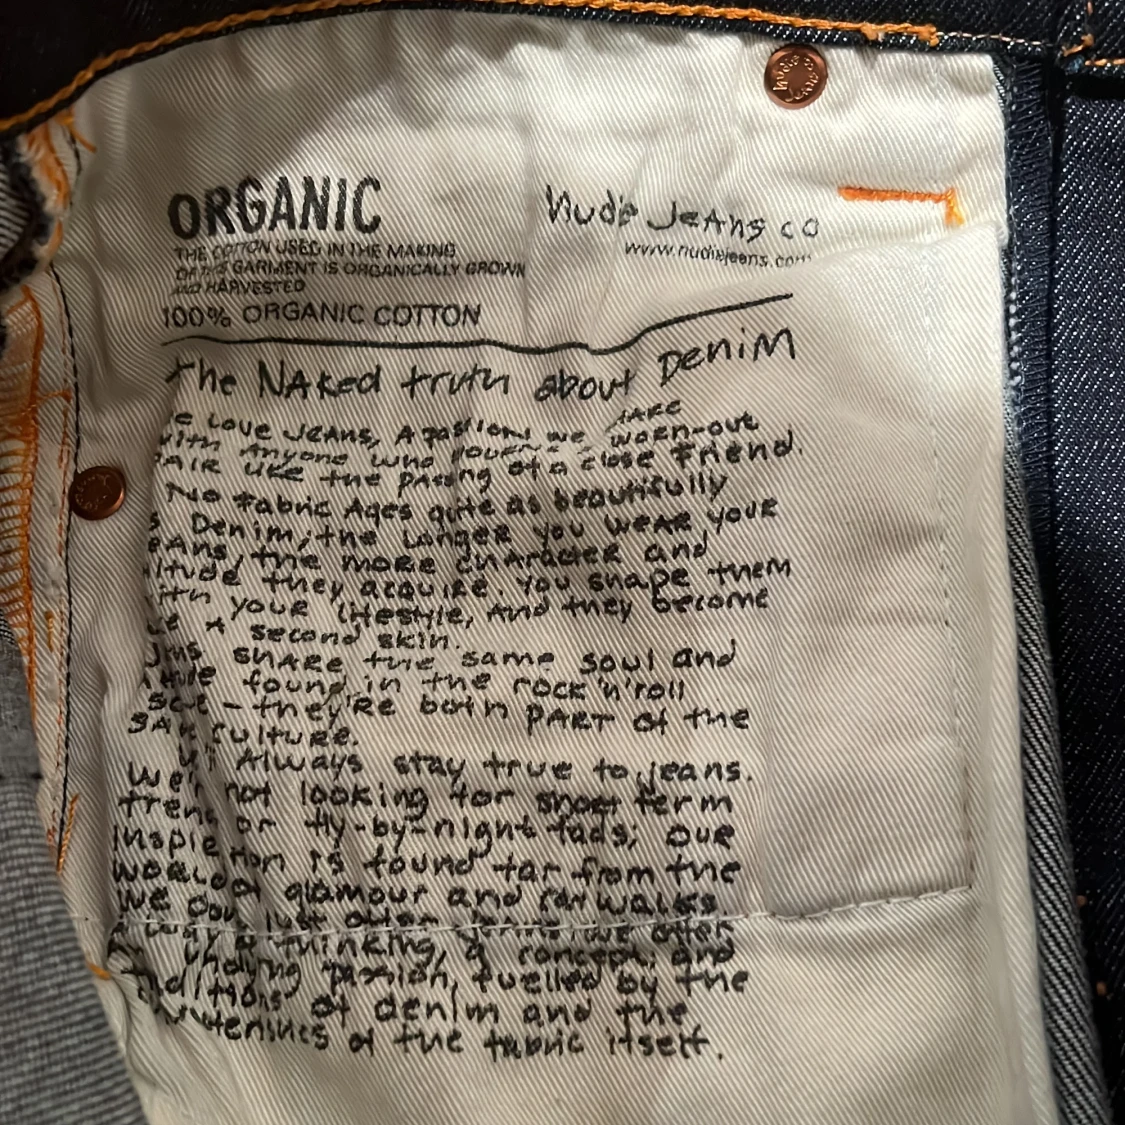 ORGANIC
THE COTTON USED IN THE MAKING
OF THIS GARMENT IS ORGANICALLY GROWN
AND HARVESTED
100% ORGANIC COTTON
Nudie Jeans co
www.nudiejeans.com
The Naked truth about Denim
e Love Jeans, A passion we share
with Anyone who mourns worn-out
pair like the passing of a close friend.
No fabric Ages quite as beautifully
s Denim, the longer you wear your
eans, the more character and
itude they acquire. You shape them
ith your lifestyle, And they become
ke A second skin.
share the same soul and
found in the rock'n'roll
they're both part of the
culture.
Always stay true to jeans.
We' not looking for short term
tren or fly-by-night fads; our
inspi tion is found far from the
world of glamour and catwalks
We don just offer we offer
A way thinking, a concept, and
undying passion, fuelled by the
traditions of denim and the
of the fabric itself.